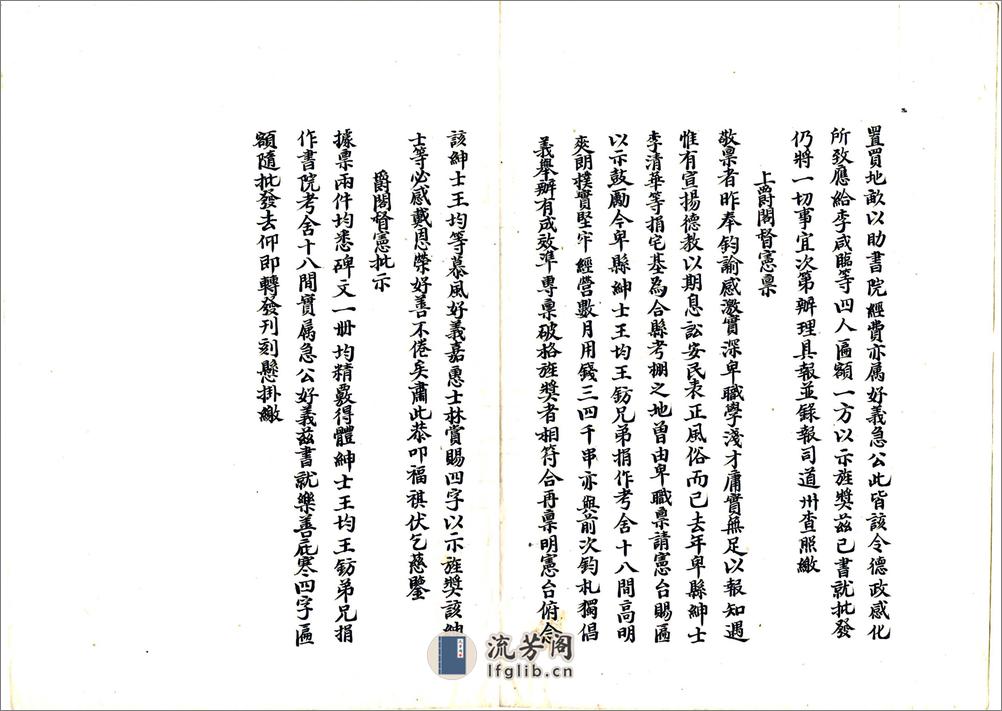 置買地畝以助書院經費亦属好義急公此皆該令德政感化
所致應給李咸臨等四人匾額一方以示旌獎茲已書就批發
仍將一切事宜次第辦理具報並錄報司道州查照繳
上爵閣督憲稟
敬稟者昨奉鈞諭感激實深卑職學淺才庸實無足以報知遇
惟有宣揚德教以期息訟安民表正風俗而已去年卑縣紳士
李清華等捐宅基為合縣考棚之地曾由卑職稟請憲台賜匾
以示鼓勵今卑縣紳士王均王鈁兄弟捐作考舍十八間高明
爽朗樸實堅牢經營數月用錢三四千串亦與前次鈞札獨倡
義舉辦有成效準專稟破格旌獎者相符合再稟明憲台俯念
該紳士王均等慕風好義嘉惠士林賞賜四字以示旌獎該紳
士等必感戴恩榮好善不倦矣肅此恭叩福祺伏乞慈鑒
爵閣督憲批示
據稟兩件均悉碑文一冊均精覈得體紳士王均王鈁弟兄捐
作書院考舍十八間實属急公好義茲書就樂善庇寒四字匾
額隨批發去仰即轉發刊刻懸掛繳
流芳阁
lfglib.cn